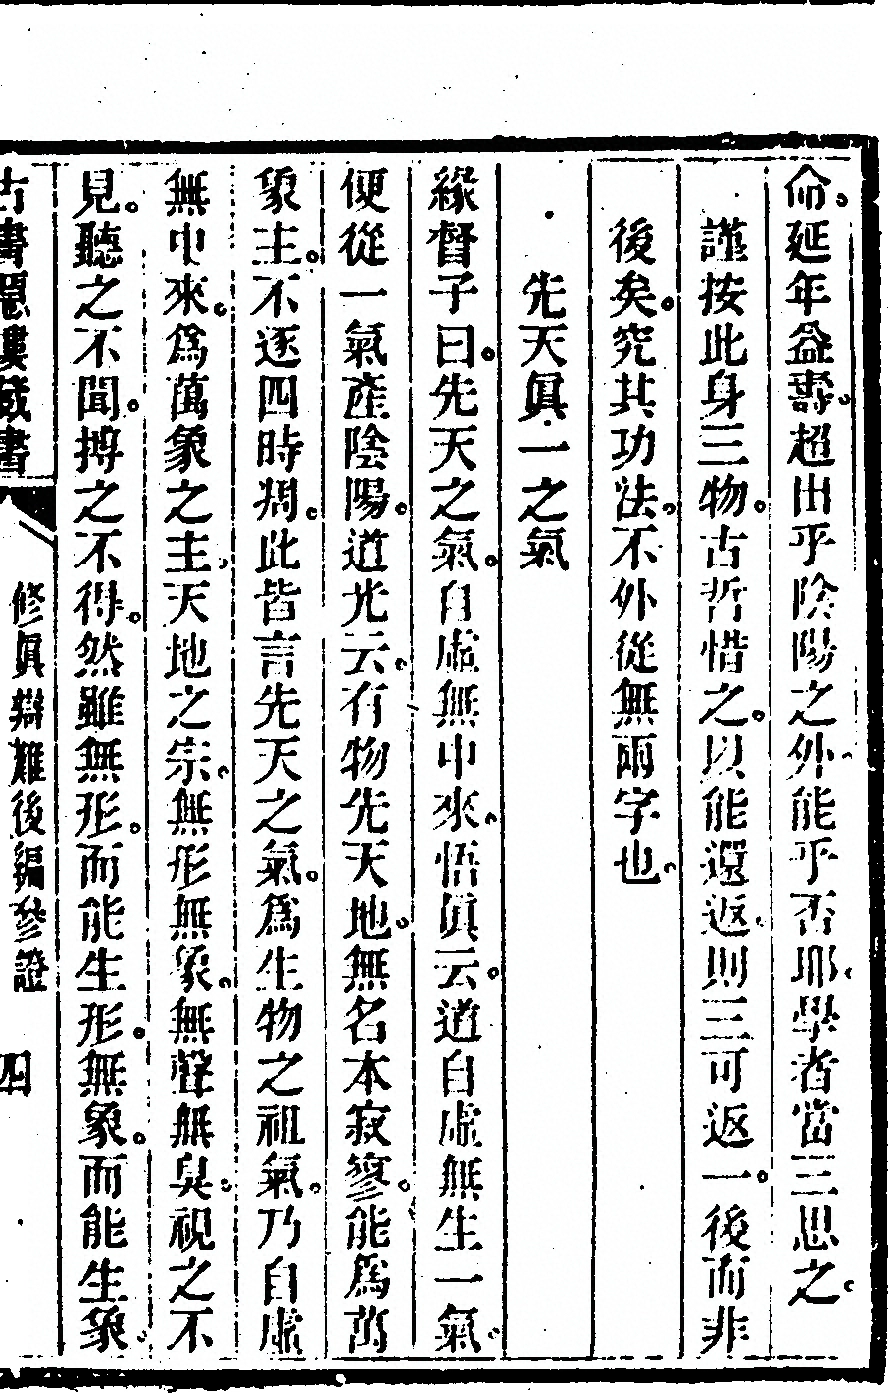 命。延年益壽。超出乎陰陽之外。能乎否耶。學者當三思之。
謹按此身三物。古哲惜之。以能還返。則三可返一。後而非
後矣。究其功法。不外從無兩字也。
先天眞一之氣
緣督子曰。先天之氣。自虛無中來。悟眞云。道自虛無生一氣。
便從一氣產陰陽。道光云。有物先天地。無名本寂寥。能爲萬
象主。不逐四時凋。此皆言先天之氣。爲生物之祖氣。乃自虛
無中來。爲萬象之主。天地之宗。無形無象。無聲無臭。視之不
見。聽之不聞。搏之不得。然雖無形。而能生形。無象。而能生象。
古書隱樓藏書
修眞辯難後編參證
四